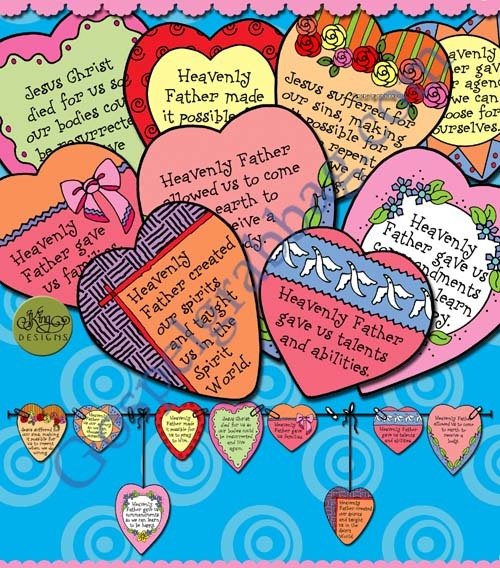 Jesus Christ
died for us so
our bodies could
be resurrected
Heavenly
Father made
it possible
Jesus suffered for
our sins, making
it possible for
repent
we do
Heavenly
Father gav
agen
we can
oose for
urselves.
Heavenly
Father gave
us families
Heavenly Father
allowed us to come
to earth to
receive a
body.
Heavenly
Father gave us
commandments
learn
Heavenly
Father created
our spirits
and taught
us in the
Spirit
World.
Heavenly Father
gave us talents
and abilities.
DJ Inkers
DESIGNS
Jesus suffered for
our sins, making
it possible for
us to repent
when we do
wrong.
Heavenly
Father made it
possible for
us to pray to
Him.
Jesus Christ
died for us so
our bodies could
be resurrected
and live
again.
Heavenly
Father gave
us families.
Heavenly Father
gave us talents
and abilities.
Heavenly Father
allowed us to come
to earth to
receive a
body.
Heavenly
Father gave us
commandments
so we can learn
to be happy.
Heavenly
Father created
our spirits and
taught us in the
Spirit
World.